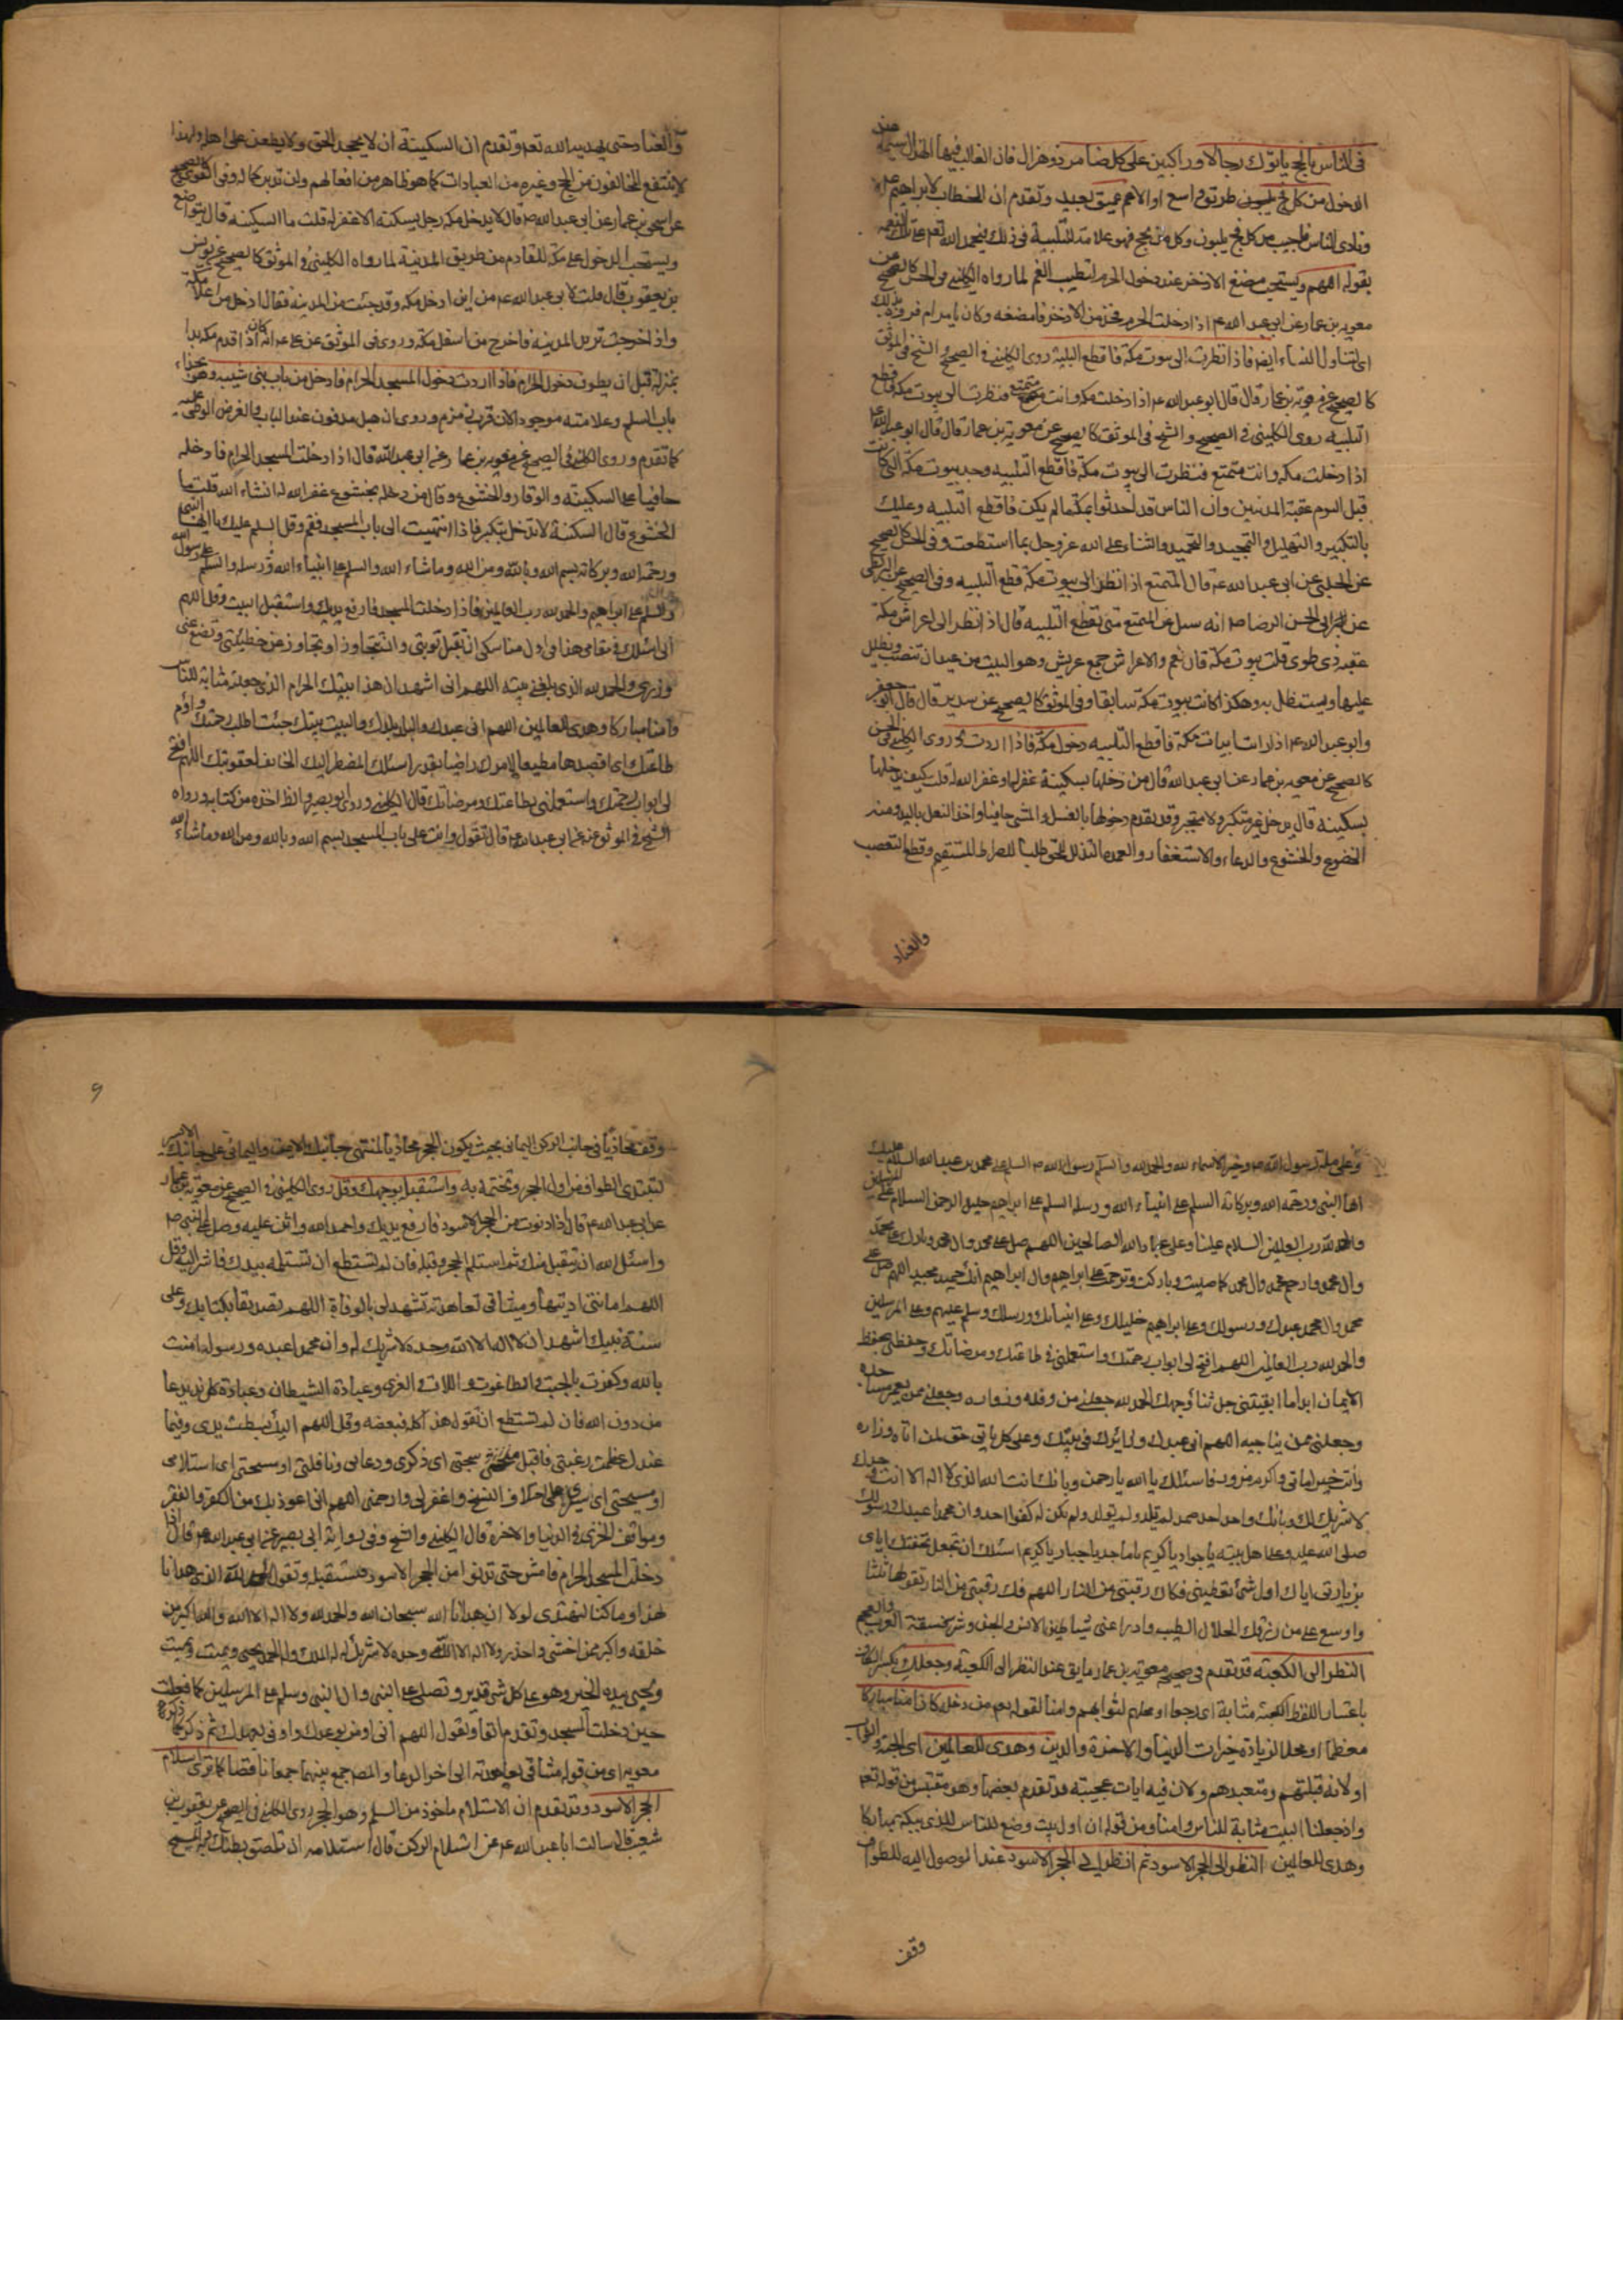 فى الناس بالحج ياتوك رجالا وراكبين على كل ضامر ذو هزال فان الغالب فيها الهزال سيما
الدخول من كل فج يلبون طريق واسع او الاعم عميق بعيد وتقدم ان الخطاب لابراهيم عم
ونادى الناس فاجيب من كل فج يلبون وكل من يحج فهو علامة للتلبية فى ذلك فيحمد الله تعم على تلك النعمه
بقوله اللهم ويستحب مضغ الاذخر عند دخول الحرم لتطيب الفم لما رواه الكلينى فى الحسن كالصحيح عن
معوية بن عمار عن ابى عبد الله عم اذا دخلت الحرم فخذ من الاذخر فامضغه وكان يامر ام فروة بذلك
اى لتناول النساء ايضا فاذا نظرت الى بيوت مكة فاقطع التلبية روى الكلينى فى الصحيح والشيخ فى الموثق
كالصحيح عن معوية بن عمار قال قال ابو عبد الله عم اذا دخلت مكه وانت متمتع فنظرت الى بيوت مكة فاقطع
التلبيه روى الكلينى فى الصحيح والشيخ فى الموثق كالصحيح عن معوية بن عمار قال قال ابو عبد الله عم
اذا دخلت مكه وانت متمتع فنظرت الى بيوت مكة فاقطع التلبيه وحد بيوت مكة التى كانت
قبل اليوم عقبة المدنيين وان الناس قد احدثوا بمكة ما لم يكن فاقطع التلبيه وعليك
بالتكبير والتهليل والتمجيد والتحميد والثناء على الله عز وجل بما استطعت وفى الحسن كالصحيح
عن الحلبى عن ابى عبد الله عم قال المتمتع اذا نظر الى بيوت مكة قطع التلبيه وفى الصحيح عن البزنطى
عن ابى الحسن الرضا عم انه سئل عن المتمتع متى يقطع التلبيه قال اذا نظر الى اعراش مكة
عقبة ذى طوى قلت بيوت مكة قال نعم والاعراش جمع عريش وهو البيت من عيدان تنصب ويظلل
عليها ويستظل به وهكذا كانت بيوت مكة سابقا وفى الموثق كالصحيح عن سدير قال قال ابو جعفر
وابو عبد الله عم اذا رايت ابيات مكة فاقطع التلبيه دخول مكة فاذا اردت روى الكلينى فى الحسن
كالصحيح عن معوية بن عمار عن ابى عبد الله قال من دخلها بسكينة غفر له وغفر الله له قلت كيف يدخلها
بسكينه قال يدخل غير متكبر ولا متجبر وقد تقدم دخولها بالغسل والمشى حافيا واخذ النعل باليد ومنه
الخضوع والخشوع والدعاء والاستغفار والعمدة التذلل للحق طلبا للصراط المستقيم وقطع التعصب
والعناد
والعناد حتى يهديه الله تعم وتقدم ان السكينة ان لا يجحد الحق ولا يطعن على اهله ولهذا
لا ينتفع المخالفون من الحج وغيره من العبادات كما هو ظاهر من افعالهم وان تدبر كما له وفى القوى كالصحيح
عن اسحق بن عمار عن ابى عبد الله عم قال لا يدخل مكه رجل بسكينة الا غفر له قلت ما السكينه قال يتواضع
ويستحب الدخول على مكة للقادم من طريق المدينة لما رواه الكلينى فى الموثق كالصحيح عن يونس
بن يعقوب قال قلت لابى عبد الله عم من اين ادخل مكه وقد جئت من المدينه فقال ادخل من اعلا مكة
واذا خرجت تريد المدينه فاخرج من اسفل مكة وروى فى الموثق عن على عم انه كان اذا قدم مكه بدا
بمنزله قبل ان يطوف دخول الحرام فاذا اردت دخول المسجد الحرام فادخل من باب بنى شيبه وهو بحذاء
باب السلم وعلامته موجود الان قرب زمزم وروى ان هبل مدفون عند الباب والغرض الوطى عليه
كما تقدم وروى الكلينى فى الصحيح عن معوية بن عمار عن ابى عبد الله قال اذا دخلت المسجد الحرام فادخله
حافيا على السكينة والوقار والخشوع وقال من دخله بخشوع غفر الله له ان شاء الله قلت ما
الخشوع قال السكنة لا تدخل بتكبر فاذا انتهيت الى باب المسجد فقم وقل السلم عليك ايها النبى
ورحمة الله وبركاته بسم الله وبالله ومن الله وما شاء الله والسلم على انبياء الله ورسله والسلم على رسول الله
والسلم على ابراهيم والحمد لله رب العالمين فاذا دخلت المسجد فارفع يديك واستقبل البيت وقل اللهم
انى اسئلك فى مقامى هذا فى اول مناسكى ان تقبل توبتى وان تتجاوز عن خطيئتى وتضع عنى
وزرى والحمد لله الذى بلغنى بيته اللهم انى اشهد ان هذا بيتك الحرام الذى جعلته مثابة للناس
وامنا مباركا وهدى للعالمين اللهم انى عبدك والبلد بلدك والبيت بيتك جئت اطلب رحمتك واؤم
طاعتك اى اقصدها مطيعا لامرك راضيا بقدرك اسئلك المضطر اليك الخائف لعقوبتك اللهم افتح
لى ابواب رحمتك واستعملنى بطاعتك ومرضاتك قال الكلينى وروى ابو بصير والظ اخذه من كتابه ورواه
الشيخ فى الموثق عنه عن ابى عبد الله عم قال تقول وانت على باب المسجد بسم الله وبالله ومن الله وما شاء الله
وعلى ملة رسول الله ص وخير الاسماء لله والحمد لله والسلم على رسول الله ص السلم على محمد بن عبد الله السلام عليك
ايها النبى ورحمة الله وبركاته السلم على انبياء الله ورسله السلم على ابراهيم خليل الرحمن السلام على المرسلين
والحمد لله رب العالمين السلام علينا وعلى عباد الله الصالحين اللهم صل على محمد وال محمد وبارك على محمد
وال محمد وارحم محمد وال محمد كما صليت وباركت وترحمت على ابراهيم وال ابراهيم انك حميد مجيد اللهم صل على
محمد وال محمد عبدك ورسولك وعلى ابراهيم خليلك وعلى انبيائك ورسلك وسلم عليهم وعلى المرسلين
والحمد لله رب العالمين اللهم افتح لى ابواب رحمتك واستعملنى فى طاعتك ومرضاتك وحفظنى بحفظ
الايمان ابدا ما ابقيتنى جل ثناؤ وجهك الحمد لله جعلنى من وفده وزواره وجعلنى ممن يعمر مساجده
وجعلنى ممن يناجيه اللهم انى عبدك وزائرك فى بيتك وعلى كل ماتى حق لمن اتاه وزاره
وانت خير ماتى واكرم مزور فاسئلك يا الله يا رحمن وبانك انت الله الذى لا اله الا انت وحدك
لا شريك لك وبانك واحد احد صمد لم تلد ولم تولد ولم يكن له كفوا احد وان محمدا عبدك ورسولك
صلى الله عليه وعلى اهل بيته يا جواد يا كريم يا ماجد يا جبار يا كريم اسئلك ان تجعل تحفتك اياى
بزيارتى اياك اول شئ تعطينى فكاك رقبتى من النار اللهم فك رقبتى من النار تقولها ثلثا
واوسع على من رزقك الحلال الطيب وادرا عنى شياطين الانس والجن وشر فسقة العرب والعجم
النظر الى الكعبة قد تقدم فى صحيح معوية بن عمار ما يق عند النظر الى الكعبة وجعلك
باعتبار اللفظ الكعبة مثابة اى رجعا او محلهم لثوابهم وامنا لقوله تعم من دخله كان امنا مباركا
معظما او محلا لزيادة خيرات الدنيا والاخرة والدين وهدى للعالمين اى الجنة والثواب
او لانه قبلتهم ومتعبدهم ولان فيه ايات عجيبة قد تقدم بعضها وهو مقتبس من قوله تعم
واذ جعلنا البيت مثابة للناس وامنا ومن قوله ان اول بيت وضع للناس للذى ببكة مباركا
وهدى للعالمين النظر الى الحجر الاسود ثم انظر الى الحجر الاسود عند الوصول اليه للطواف
وقف
٩
وقف محاذيا فى جانب الركن اليمانى بحيث يكون الحجر محاذيا لمنتهى جانبك الايمن واليمانى على جانبك الايسر
لتبتدى الطواف من اول الحجر وتختم به واستقبله بوجهك وقل روى الكلينى فى الصحيح عن معوية بن عمار
عن ابى عبد الله عم قال اذا دنوت من الحجر الاسود فارفع يديك واحمد الله واثن عليه وصل على النبى ص
واسئل الله ان يتقبل منك ثم استلم الحجر وقبله فان لم تستطع ان تستلمه بيدك فاشر اليه وقل
اللهم امانتى اديتها وميثاقى تعاهدته لتشهد لى بالموافاة اللهم تصديقا بكتابك وعلى
سنة نبيك اشهد ان لا اله الا الله وحده لا شريك له وان محمدا عبده ورسوله امنت
بالله وكفرت بالجبت والطاغوت واللات والعزى وعبادة الشيطان وعبادة كل ند يدعا
من دون الله فان لم تستطع ان تقول هذا كله فبعضه وقل اللهم اليك بسطت يدى وفيما
عندك عظمت رغبتى فاقبل سبحتى اى ذكرى ودعائى ونافلتى او مسحتى اى استلامى
او مسيحتى اى سيرى على اختلاف النسخ واغفر لى وارحمنى اللهم انى اعوذ بك من الكفر والفقر
ومواقف الخزى فى الدنيا والاخرة قال الكلينى والشيخ وفى رواية ابى بصير عن ابى عبد الله عم قال اذا
دخلت المسجد الحرام فامش حتى تدنو من الحجر الاسود فتستقبله وتقول الحمد لله الذى هدانا
لهذا وما كنا لنهتدى لولا ان هدانا الله سبحان الله والحمد لله ولا اله الا الله والله اكبر من
خلقه واكبر ممن اخشى واحذر ولا اله الا الله وحده لا شريك له له الملك وله الحمد يحيى ويميت ويميت
ويحيى بيده الخير وهو على كل شئ قدير وتصلى على النبى وال النبى وسلم على المرسلين كما فعلت
حين دخلت المسجد وتقدم انفا وتقول اللهم انى اومن بوعدك واوفى بعهدك ثم ذكر كما ذكره
معويه اى من قوله ميثاقى تعاهدته الى اخر الدعا والمصـ جمع بينهما جمعا ناقصا كما ترى استلام
الحجر الاسود وقد تقدم ان الاستلام ماخوذ من السلم وهو الحجر روى الكلينى فى الصحيح عن يعقوب بن
شعيب قال سالت ابا عبد الله عم عن استلام الركن قال استلامه ان تلصق بطنك به والمسح